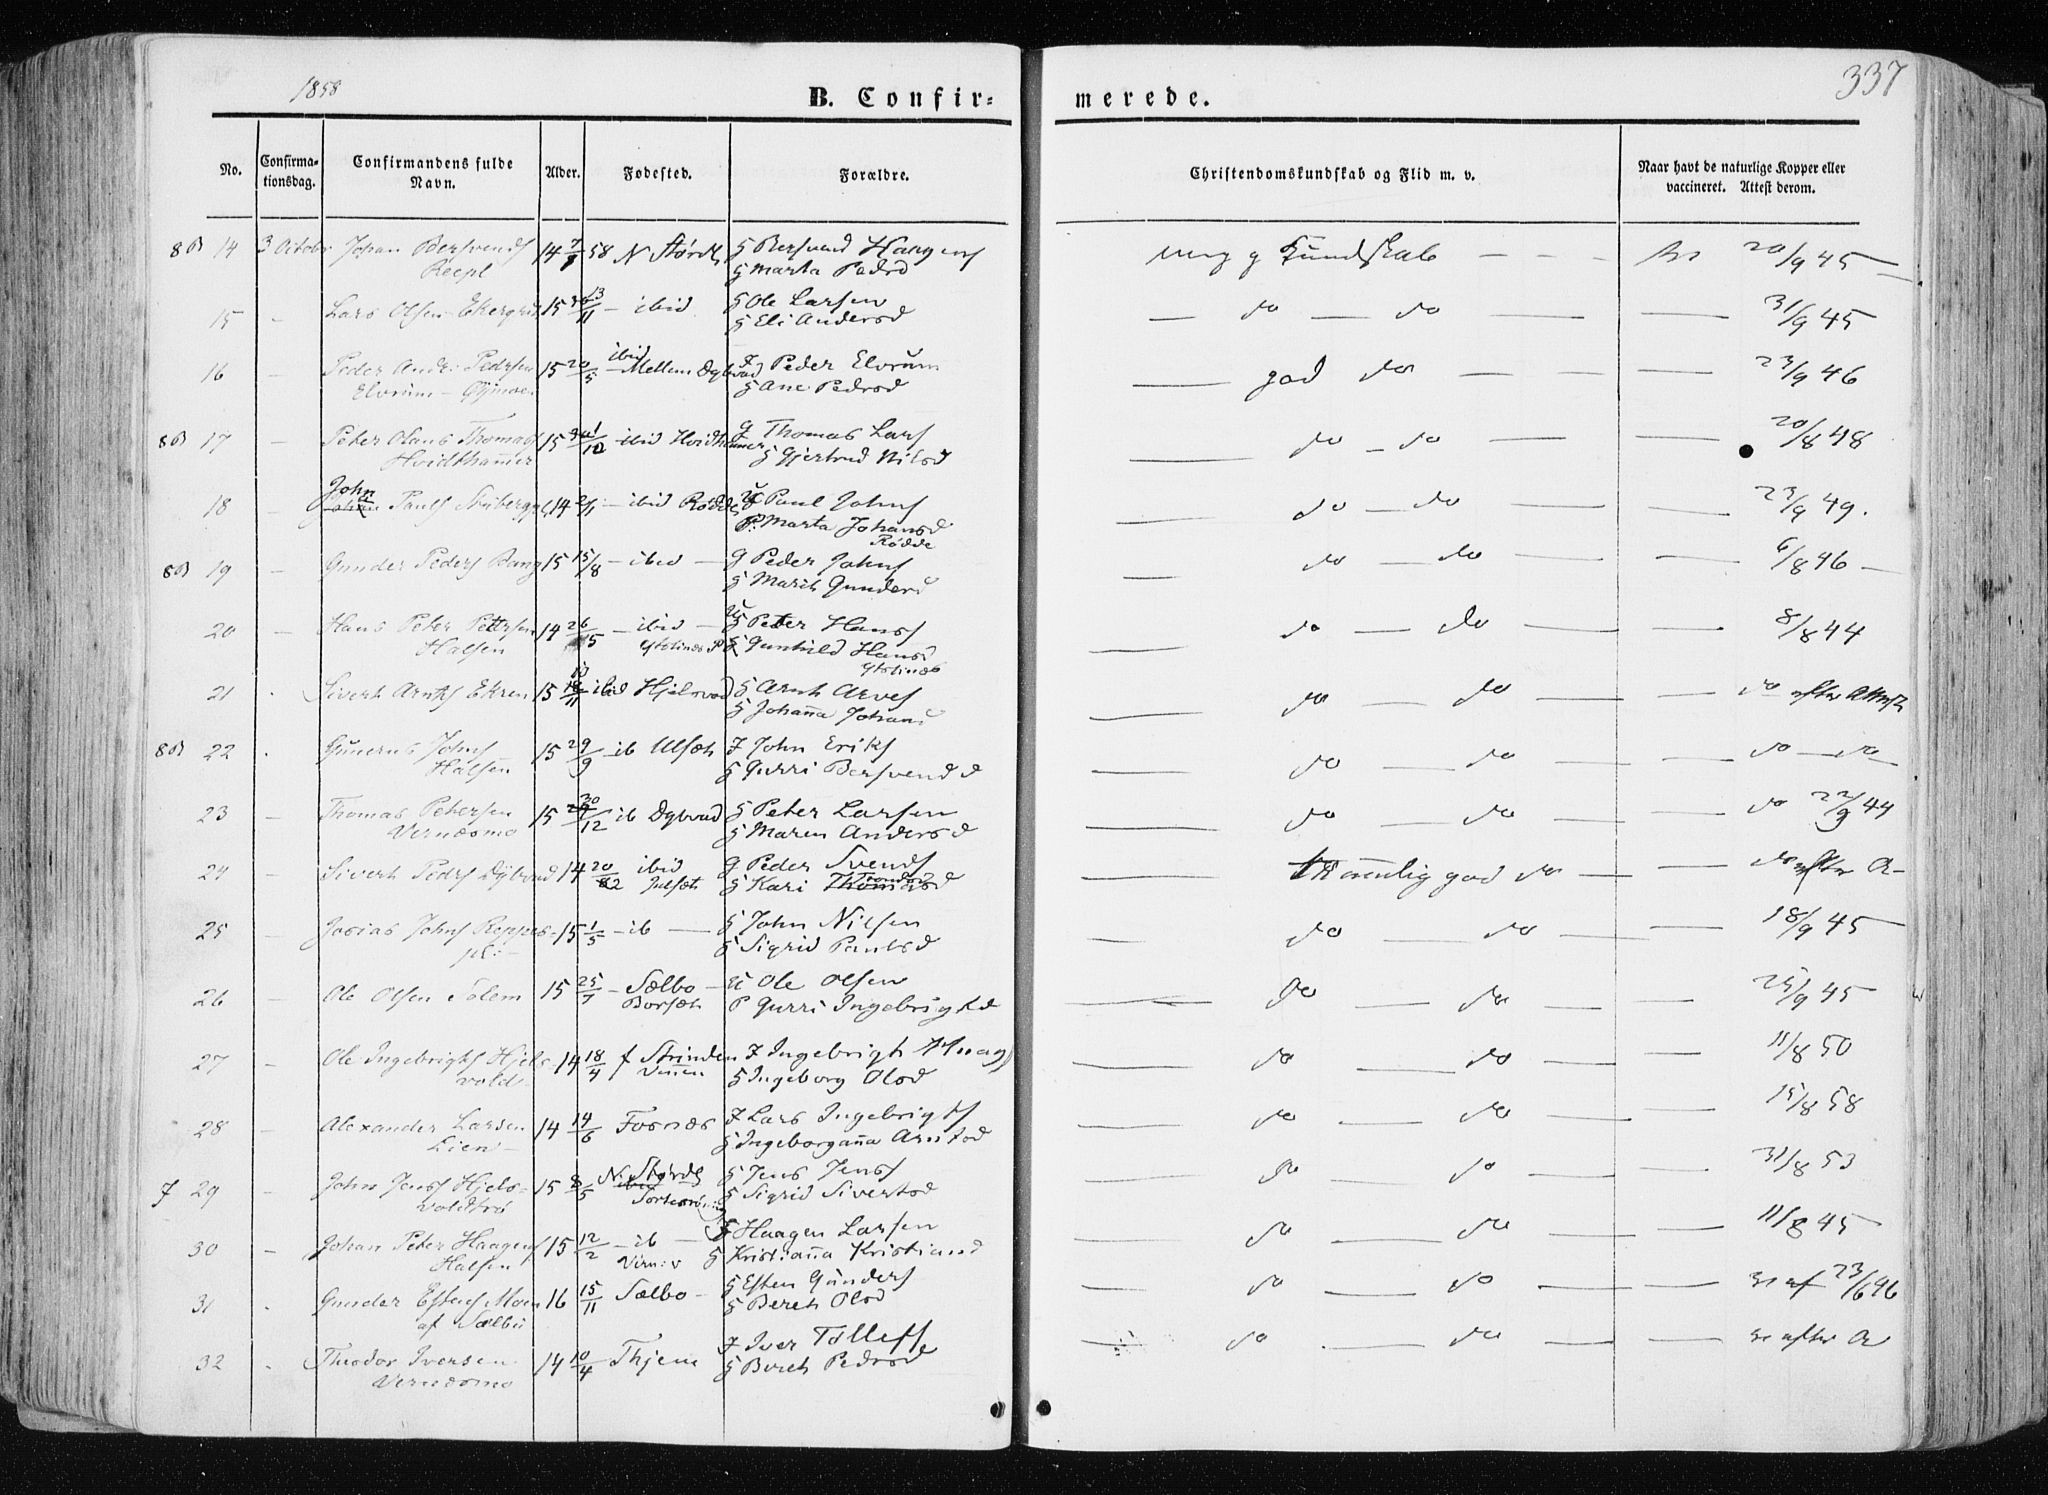 1858
B. Confir=
merede.
337
No.
Confirma-
tionsdag.
Confirmandens fulde
Navn.
Alder.
Fødested.
Forældre.
Christendomskundskab og Flid m. v.
Naar havt de naturlige Kopper eller
vaccineret. Attest derom.
14 3 October Johan Bersvends 14 58 N Størdl G Bersvend Haagens meg g Kundskab — — — 20/9 45
Reepl G Marta Pedrsd
15 — Lars Olsen 15 11 — ibid G Ole Larsen — do — do — 31/9 45
G Eli Andersd
16 — Peder Andr: Pedersen 15 20/5 ibid — Mellem Dybvad F Peder Elvrum — god do — 23/9 46
Elvrum — G Ane Pedrsd
17 — Peter Olaus Thomas 15 — ibid Hvidthamer G Thomas Lars — do — do — 20/8 48
Hvidthammer G Gjertrud Nilsd
18 — John Pauls 14 2/11 — ibid Rødde Paul Johns — do — do — 23/9 49.
P. Marta Johansd
Rødde
19 — Gunder Peders Bang 15 15/8 — ibid — G Peder Johns — do — do — 6/8 46
G Marit Gundersd
20 — Hans Peter Petersen 14 26 — ibid — Peter Hans — do — do — 8/8 44
Halsen Gunhild Hansd
21 Sivert Arnts Ekren 15 11 — ibid Hjelsvold G Arnt Arves — do — do — do efter Attest
G Johanna Johansd
22 Gunerus Johns 15 29/9 — ib Ulsæt F John Eriks — do — do — do — do
Halsen G Gurri Bersvendsd
23 — Thomas Petersen 15 12 ib Dybvad G Peter Larsen — do — do — do 22/9 44
Vernesmo G Maren Andersd
24 — Sivert Peders Dybvad 14 20/12 ibid G Peder Svends temmelig god do — do efter A—
Julsæt G Kari
25 — Josias Johns Reppes= 15 1/5 — ib — G John Nilsen — do — do — 18/9 45
pl: G Sigrid Paulsd
26 — Ole Olsen Solem 15 25/7 — Sælbo — Ole Olsen — do — do — 25/9 45
Borsæt P Gurri Ingebrigtsd
27 — Ole Ingebrigts Hjels= 14 18/4 f Strinden F Ingebrigt — do — do — 11/8 50
vold G Ingeborg Olsd
28 — Alexander Larsen 14 14/6 Fosnæs F Lars Ingebrigts — do — do — 15/8 58
Lien G Ingeborganna Arntsd
29 — John Jens Hjels= 15 8/5 N. Størdl G Jens Jens — do — do — 31/8 53
voldtrø G Sigrid Sivertsd
30 — Johan Peter Haagens 15 12/2 — ib — Haagen Larsen — do — do — 11/8 45
Halsen G Kristianna Kristiansd
31 Gunder Estens Moen 16 15/11 Sælbo — G Esten Gunders — do — do — 23/6 46
af Sælbu G Beret Olsd
32 Theodor Iversen 14 10/4 Thjem F Iver Tollefs — do — do — efter A
Vernesmo G Beret Pedrsd